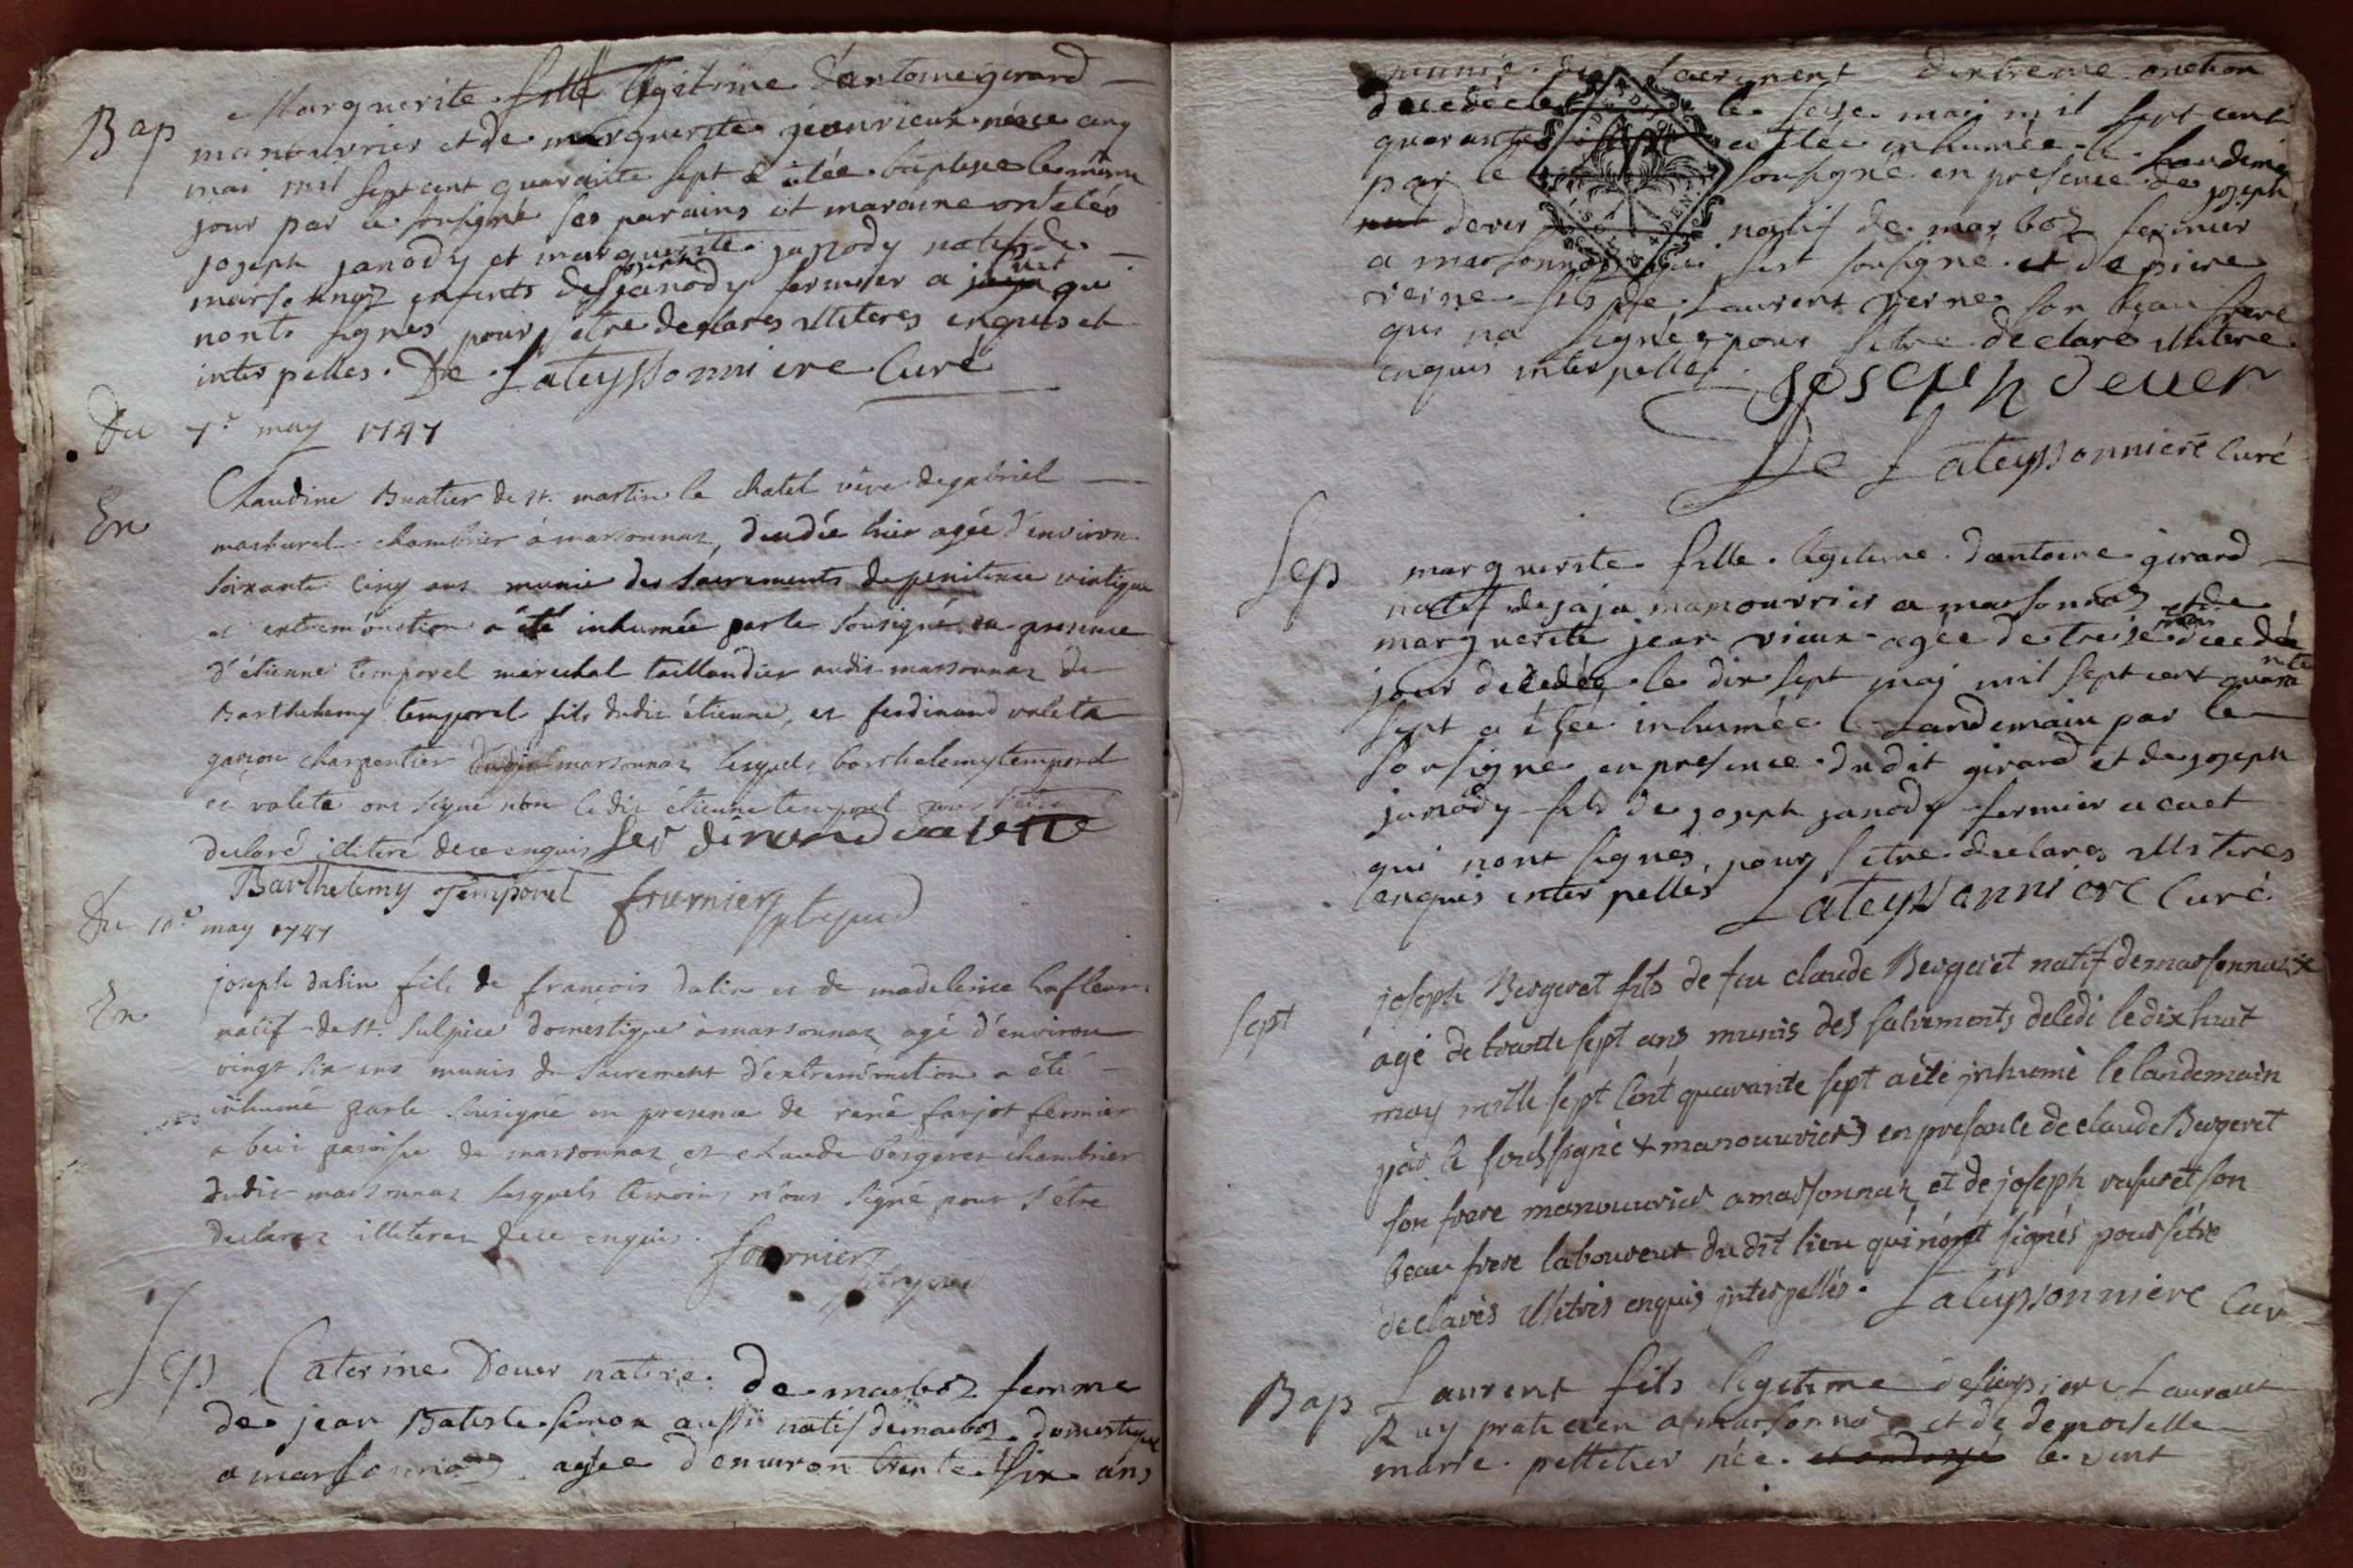 Bap
Marguerite fille legitime d'antoine girard
manouvrier et de marguerite jeanvieux née ce cinq
mai mil sept cent quarante sept a étée baptisée le même
jour par le sousigné ses parains et maraine ont étés
joseph janody et marguerite janody natifs de
marsonnaz enfents de joseph janody fermier a cuet qui
nonts signés pour s'etre declarés illiteres enquis et
interpelles. De Lateyssonniere Curé
Du 7e may 1747
En
Claudine Buatier de st. martin le chatel véve de gabriel
chambrier à marsonnaz, decedée hier agée d'environ
soixante cinq ans munie des sacrements de penitence viatique
et extremonction a été inhumée par le sousigné en presence
d'étienne temporel marechal taillandier audit marsonnaz de
Barthelemy temporel fils dudit étienne, et ferdinand valete
garçon charpentier dudit marsonnaz lesquels barthelemy temporel
et valete ont signé non le dit étienne temporel pour s'etre
declaré illiteré de ce enquis ferdinand valette
Barthelemy Temporel fournier
Du 10e may 1747
En
joseph dalin fils de françois dalin et de madeleine lafleur
natif de st. sulpice domestique à marsonnaz agé d'environ
vingt six ans munis du sacrement d'extremonction a été
inhumé par le sousigné en presence de rené farjot fermier
a bevi paroisse de marsonnaz et claude bergeret chambrier
dudit marsonnaz lesquels temoins n'ont signé pour s'être
declarez illiterez de ce enquis. fournier
Sep
Caterine Dever native de marboz femme
de jean Batiste simon aussi natif de marboz domestique
a marsonnaz agée d'environ trente six ans
munie du sacrement d'extreme onction
decedée le seise mai mil sept cent
quarante sept a étée inhumée le landemain
par le sousigné en presence de joseph
dever natif de marboz fermier
a marsonnaz qui s'est sousigné et de piere
verne fils de Laurent verne son beau frere
qui na signé pour s'etre declaré illitere
enquis interpellé. joseph dever
De Lateyssonniere Curé
Sep
marguerite fille legitime d'antoine girard
natif de jaja manouvrier a marsonnaz et de
marguerite jean vieux agée de treise
jour decedée le dix sept mai mil sept cent quarante
sept a étée inhumée le landemain par le
sousigné en presence dudit girard et de joseph
janody fils de joseph janody fermier a cuet
qui nont signés, pour s'etre declares illiteres
enquis interpellés Lateyssonniere Curé
Sept
joseph Bergeret fils de feu claude Bergeret natif de marsonnaz x
agé de trante sept ans munis des sacrements decedé le dix huit
may mille sept cent quarante sept a été inhumé le landemain
par le soussigné x manouvrier en presance de claude Bergeret
son frere manouvrier a marsonnaz et de joseph vasuret son
beau frere laboureur du dit lieu qui n'ont signés pour s'étre
declarés illetrés enquis interpellés. Lateyssonniere Cur
Bap
Laurent fils legitime de sieur piere Laurant
Ruy praticien a marsonnaz et de demoiselle
marie pelletier née le vint